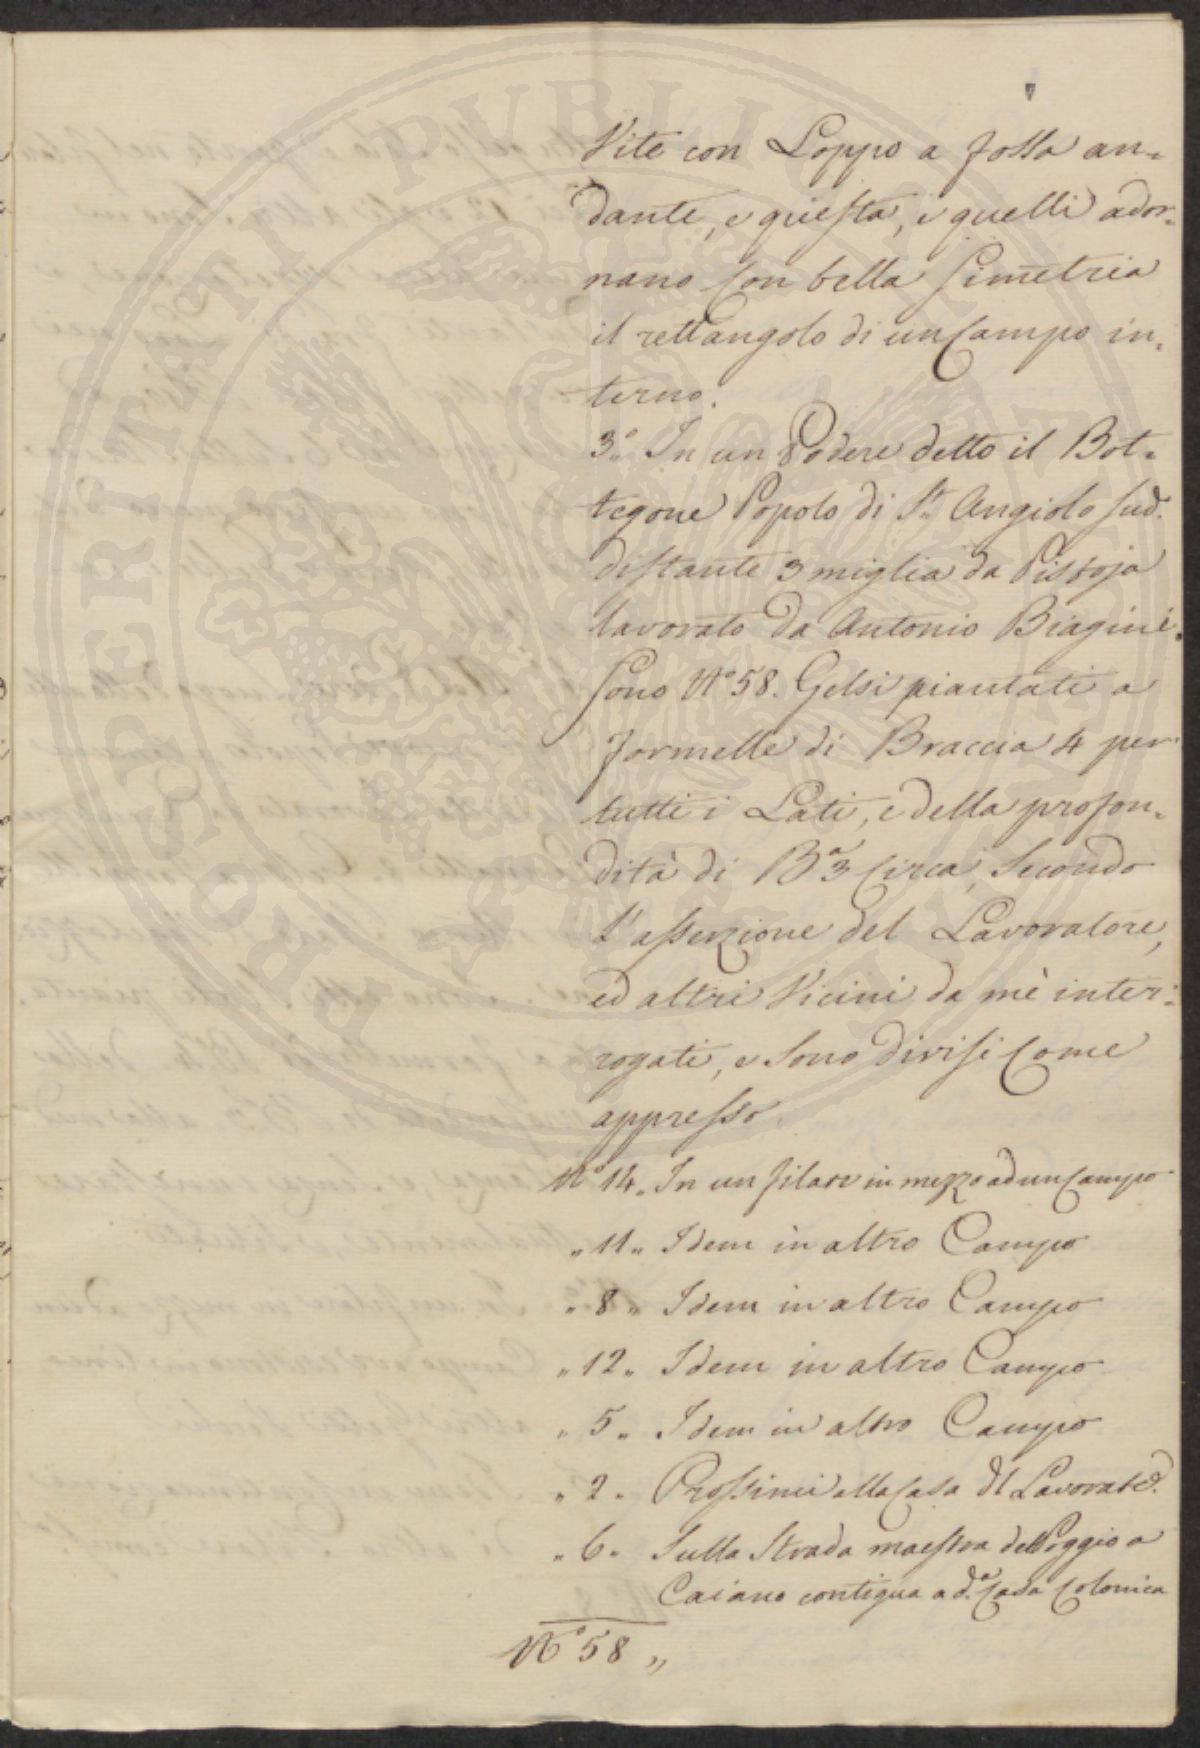 Vite con Loppo a fossa an-
dante, e questa, e quelli ador-
nano con bella simetria
il rettangolo di un Campo in-
terno.
3.° In un Podere detto il Bot-
tegone Popolo di S. Angiolo sud.
distante 3 miglia da Pistoja
lavorato da Antonio Biagini.
Sono N° 58. Gelsi piantati a
formelle di Braccia 4 per
tutti i Lati, e della profon-
dità di B.a 3 Circa, Secondo
l'asserzione del Lavoratore,
ed altri Vicini da mè inter-
rogati, e sono divisi Come
appresso
N° 14 „ In un filare in mezzo ad un Campo
„ 11 „ Idem in altro Campo
„ 8 „ Idem in altro Campo
„ 12 „ Idem in altro Campo
„ 5 „ Idem in altro Campo
„ 2 „ Prossimi alla Casa dl Lavorat.e
„ 6 „ Sulla Strada maestra del Poggio a
Caiano contigua a d.a Casa Colonica
N° 58 „
PROSPERITATI PUBLICAE